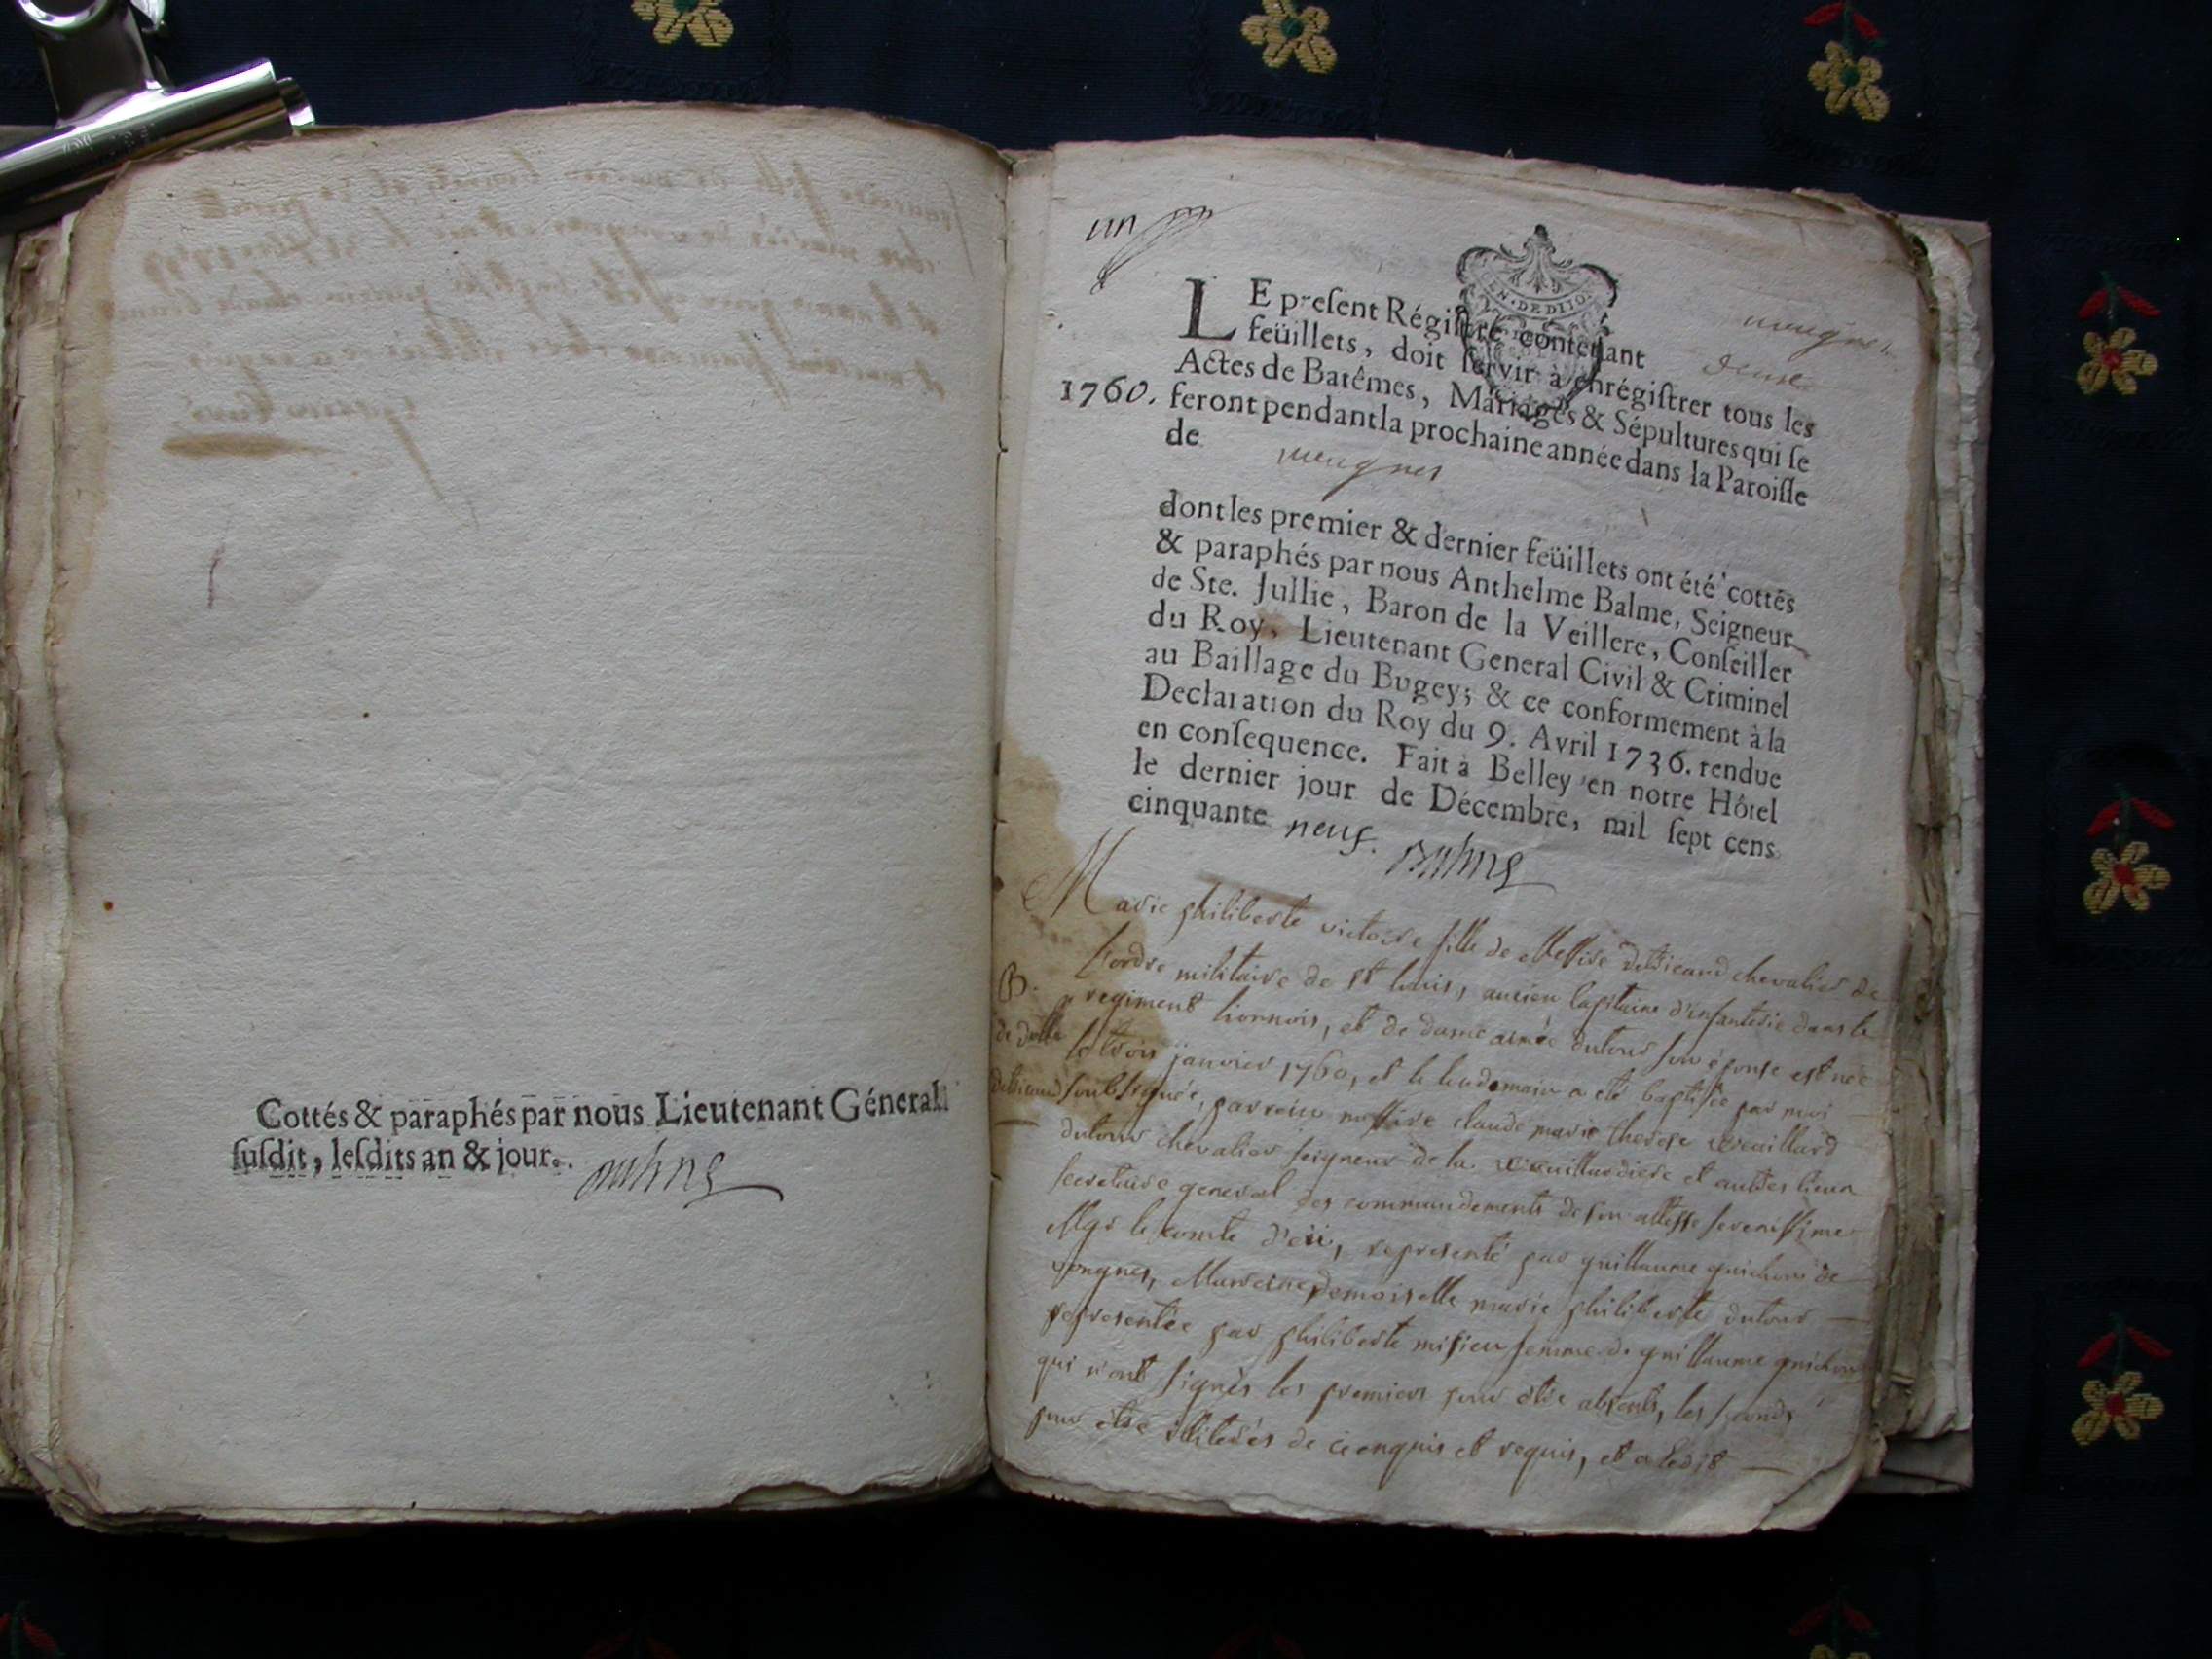 Cottés & paraphés par nous Lieutenant Général
ſuſdit, leſdits an & jour.
Balme
un
EN·DE DIJO
LE preſent Régiſtre contenant
feüillets, doit ſervir à enrégiſtrer tous les
Actes de Batêmes, Mariages & Sépultures qui ſe
1760. feront pendant la prochaine année dans la Paroiſſe
de
dont les premier & dernier feüillets ont été cottés
& paraphés par nous Anthelme Balme, Seigneur
de Ste. Jullie, Baron de la Veillere, Conſeiller
du Roy, Lieutenant General Civil & Criminel
au Baillage du Bugey; & ce conformement à la
Declaration du Roy du 9. Avril 1736. rendue
en conſequence. Fait à Belley en notre Hôtel
le dernier jour de Décembre, mil ſept cens
cinquante neuf. Balme
Marie philiberte victoire fille de Messire chevalier de
l'ordre militaire de st louis, ancien capitaine d'infanterie dans le
B. regiment lionnois, et de dame aimée dutour son éponse est née
le trois janvier 1760, et le lendemain a eté baptisée par moi
soubsigné, parrein messire claude marie therese
dutour chevalier seigneur de la et autres lieux
secretaire general des commandements de son altesse serenissime
Mgr le comte d'eu, representé par guillaume guichon de
vongnes, Marreine demoiselle marie philiberte dutour
representée par philiberte misieu femme de guillaume guichon
qui n'ont signés les premiers pour etre absents, les seconds
pour etre illiterés de ce enquis et requis, et a